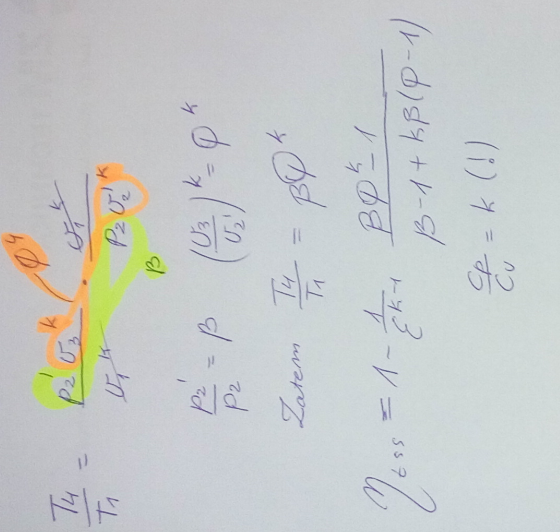 T4/T1 = p2' υ3^k / υ1^k · υ1^k / p2 υ2'^k
φ^4
β
p2'/p2 = β (υ3/υ2')^k = φ^k
Zatem T4/T1 = βφ^k
η_tss = 1 - 1/ε^(k-1) βφ^k - 1 / β - 1 + kβ(φ - 1)
cp/cv = k (!)